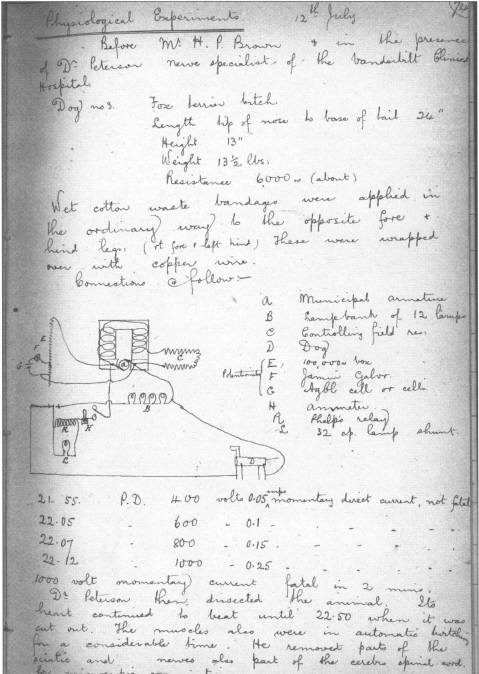 Physiological Experiments 12th July
Before Mr. H. P. Brown & in the presence
of Dr Peterson nerve specialist of the Vanderbilt Clinic
Hospital.
Dog no 3. Fox terrier bitch
Length tip of nose to base of tail 24"
Height 13"
Weight 13½ lbs.
Resistance 6000 ω (about)
Wet cotton waste bandages were applied in
the ordinary way to the opposite fore &
hind legs. (rt fore & left hind) These were wrapped
over with copper wire.
Connections as follow:-
A Municipal armature
B Lampbank of 12 lamps
C Controlling field res.
D Dog
E, 100,000 ω box
Potentiometer F Galvr.
G cell or cell
H ammeter.
R Phelps relay
L 32 cp. lamp shunt.
E
F
G
A
C
B
H
R
L
D
21-55. P.D. 400 volts 0.05 amps momentary direct current, not fatal
22.05 - 600 - 0.1 - - - - -
22.07 - 800 - 0.15 - - - - -
22.12 - 1000 - 0.25 - - - -
1000 volt momentary current fatal in 2 mins.
Dr Peterson then dissected the animal. Its
heart continued to beat until 22.50 when it was
cut out. The muscles also were in automatic twitching
for a considerable time. He removed parts of the
sciatic and nerves also part of the cerebro spinal cord
for